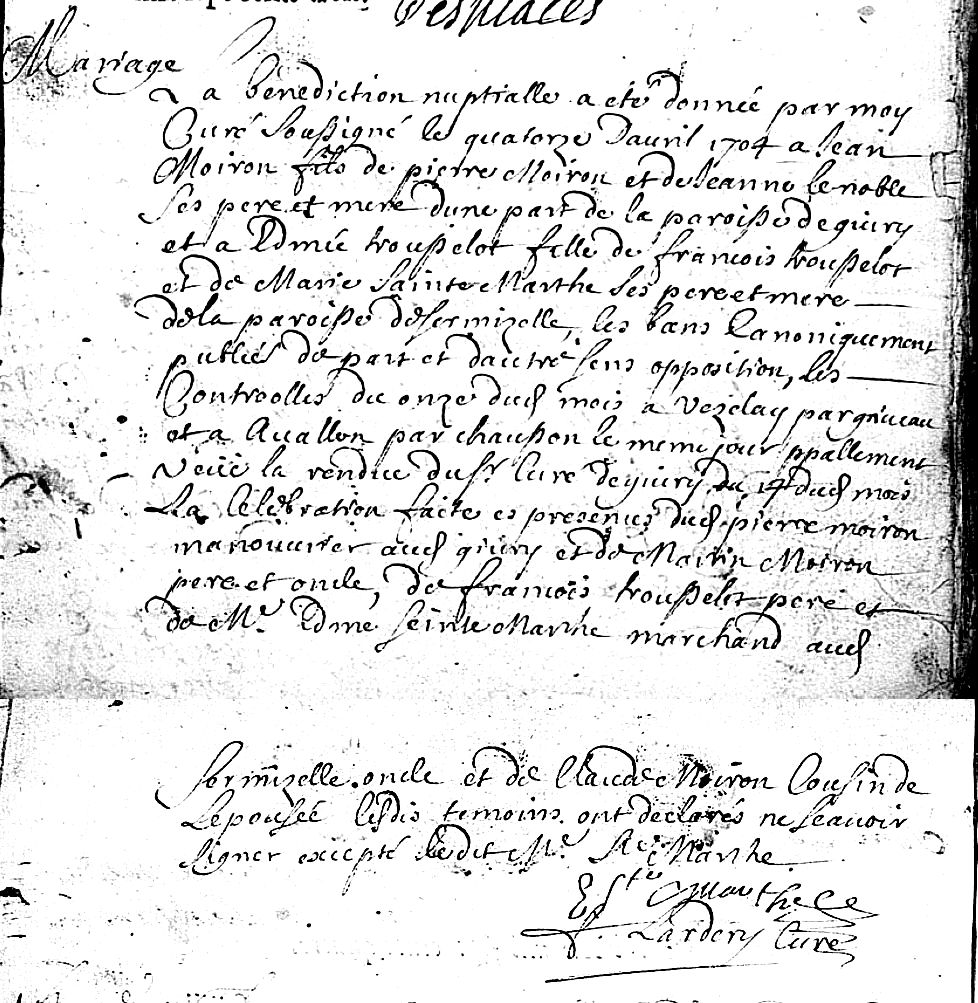 Desplaces
Mariage
La benediction nuptialle a eté donnée par moy
Curé soussigné le quatorze Dauril 1704 a Jean
Moiron fils de pierre Moiron et de Jeanne le noble
ses pere et mere dune part de la paroisse de giury
et a Edmée trousselot fille de francois trousselot
et de Marie Sainte Marthe ses pere et mere
de la paroisse de sermizelle, les bans Canoniquement
publiés de part et dautre sens opposition, les
Controolles du onze dud mois a Vezelay par
et a Auallon par chausson le meme jour ppallement
Veüe la rendue du sr Cure de giury du 14 dud mois
La Celebration faite es presences dud pierre moiron
manouurier aud giury et de Moiron
pere et oncle, de francois trousselot pere et
de Me. Edme seinte Marthe marchand aud
Sermizelle oncle et de Claude Moiron Cousin de
Lepousée lesdis temoins ont declarés ne scauoir
signer excepté ledit Me. Ste Marthe
E Ste Marthe
Lardery Curé